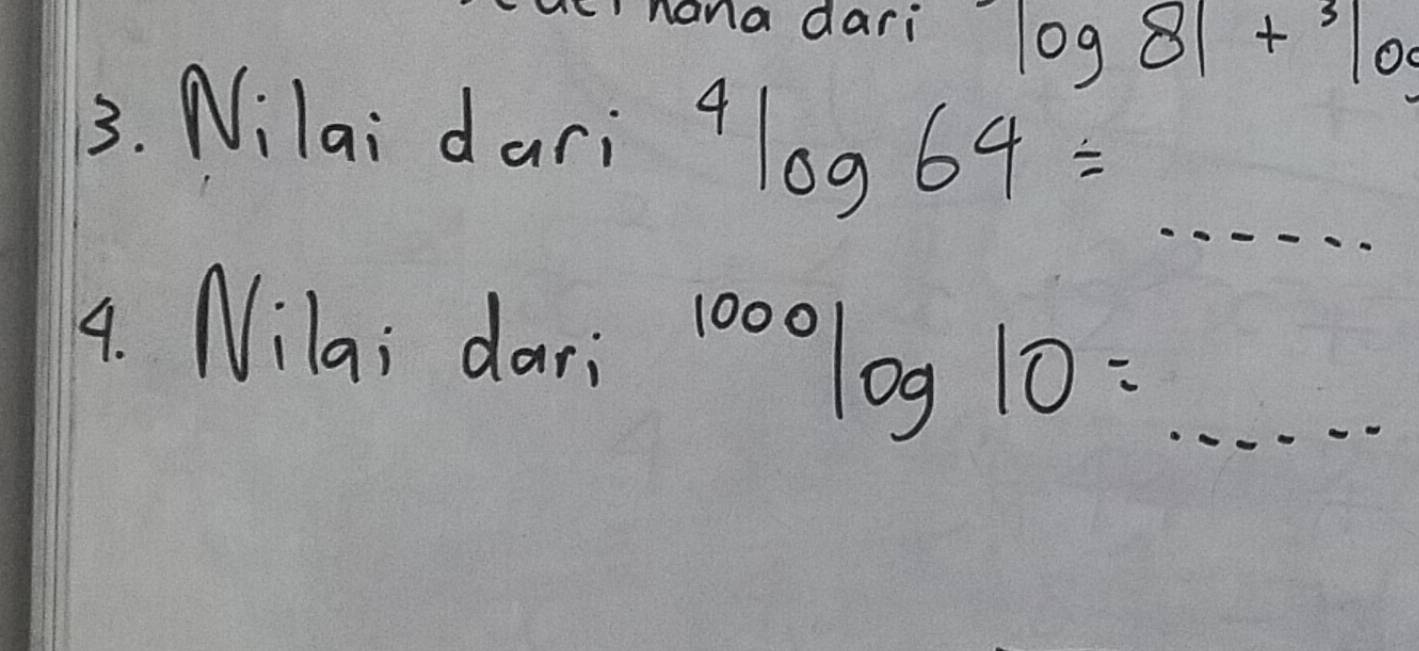 dari log 81 + ³log
3. Nilai dari ⁴log 64 =
......
4. Nilai dari ¹⁰⁰⁰log 10 = ......